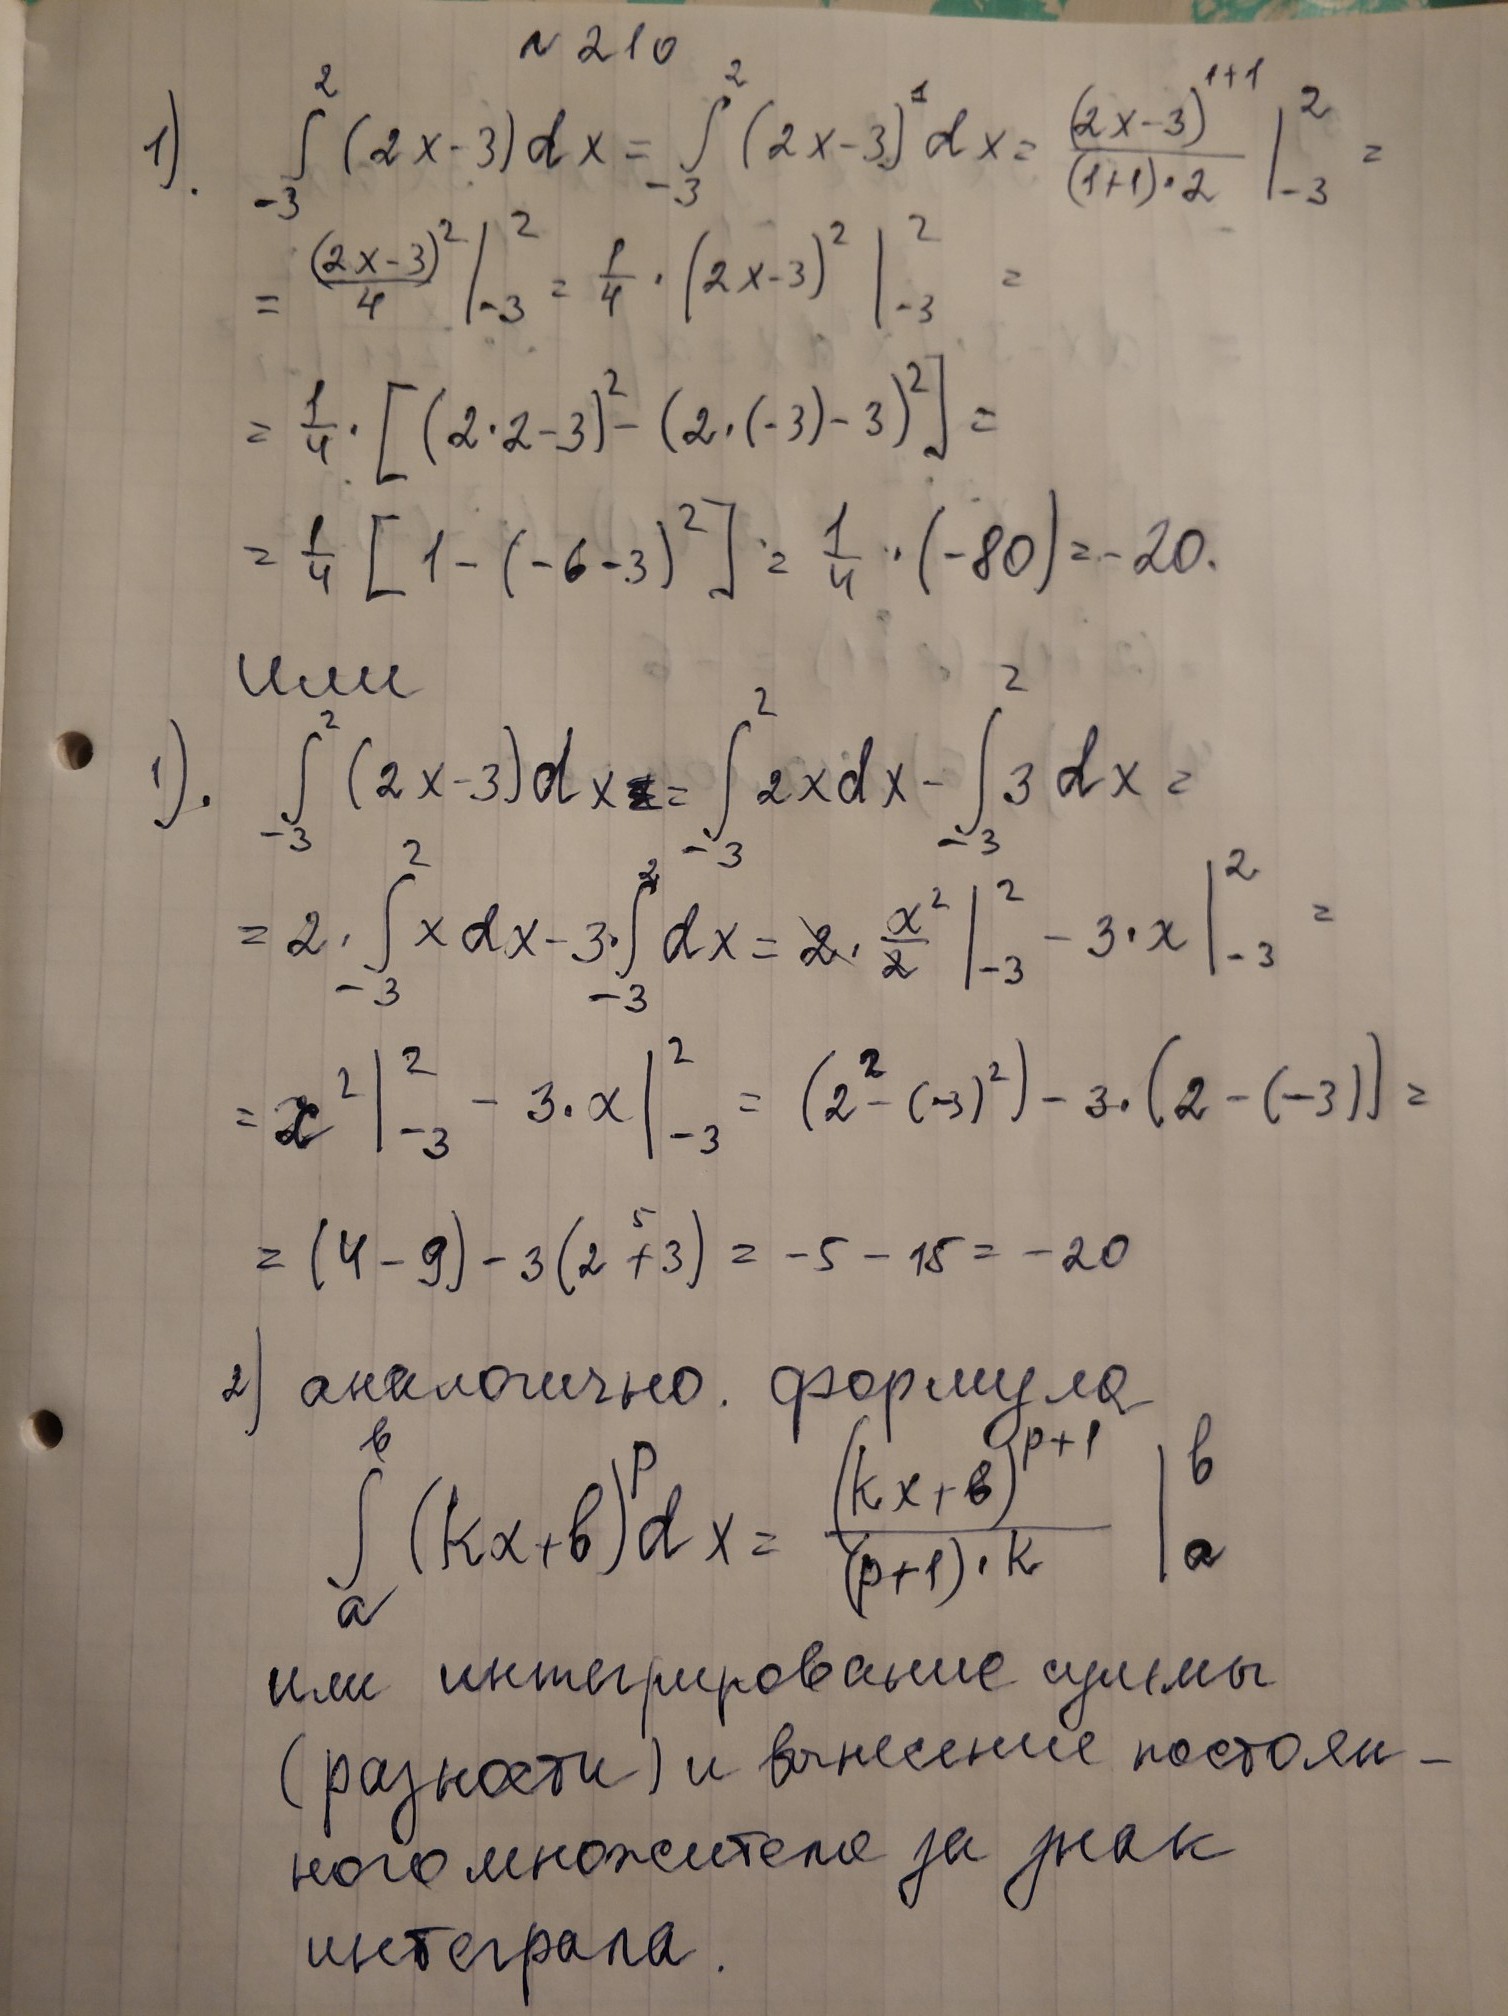 № 210
1). ∫₋₃² (2x-3) dx = ∫₋₃² (2x-3)¹ dx = (2x-3)¹⁺¹/((1+1)·2) |₋₃² =
= (2x-3)²/4 |₋₃² = 1/4 · (2x-3)² |₋₃² =
= 1/4 · [(2·2-3)² - (2·(-3)-3)²] =
= 1/4 [1-(-6-3)²] = 1/4 · (-80) = -20.
или
1). ∫₋₃² (2x-3) dx = ∫₋₃² 2x dx - ∫₋₃² 3 dx =
= 2 · ∫₋₃² x dx - 3·∫₋₃² dx = 2 · x²/2 |₋₃² - 3·x |₋₃² =
= x² |₋₃² - 3·x |₋₃² = (2² - (-3)²) - 3·(2-(-3)) =
= (4-9) - 3(2+3) 5 = -5-15 = -20
2) аналогично. формула
∫ₐᵇ (kx+b)ᵖ dx = (kx+b)ᵖ⁺¹/((p+1)·k) |ₐᵇ
или интегрирование суммы
(разности) и вынесение постоян-
ного множителя за знак
интеграла.